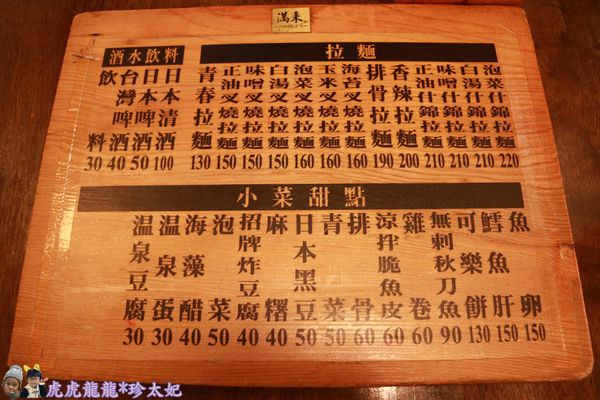 滿來
酒水飲料
飲料 30
台灣啤酒 40
日本啤酒 50
日本清酒 100
拉麵
青春拉麵 130
正油叉燒拉麵 150
味噌叉燒拉麵 150
白湯叉燒拉麵 150
泡菜叉燒拉麵 160
玉米叉燒拉麵 160
海苔叉燒拉麵 160
排骨拉麵 190
香辣拉麵 200
正油什錦拉麵 210
味噌什錦拉麵 210
白湯什錦拉麵 210
泡菜什錦拉麵 220
小菜甜點
温泉豆腐 30
温泉蛋 30
海藻醋 40
泡菜 50
招牌炸豆腐 40
麻糬 40
日本黑豆 50
青菜 50
排骨 60
涼拌脆魚皮 60
雞卷 60
無刺秋刀魚 90
可樂餅 130
鱈魚肝 150
魚卵 150
虎虎龍龍*珍太妃